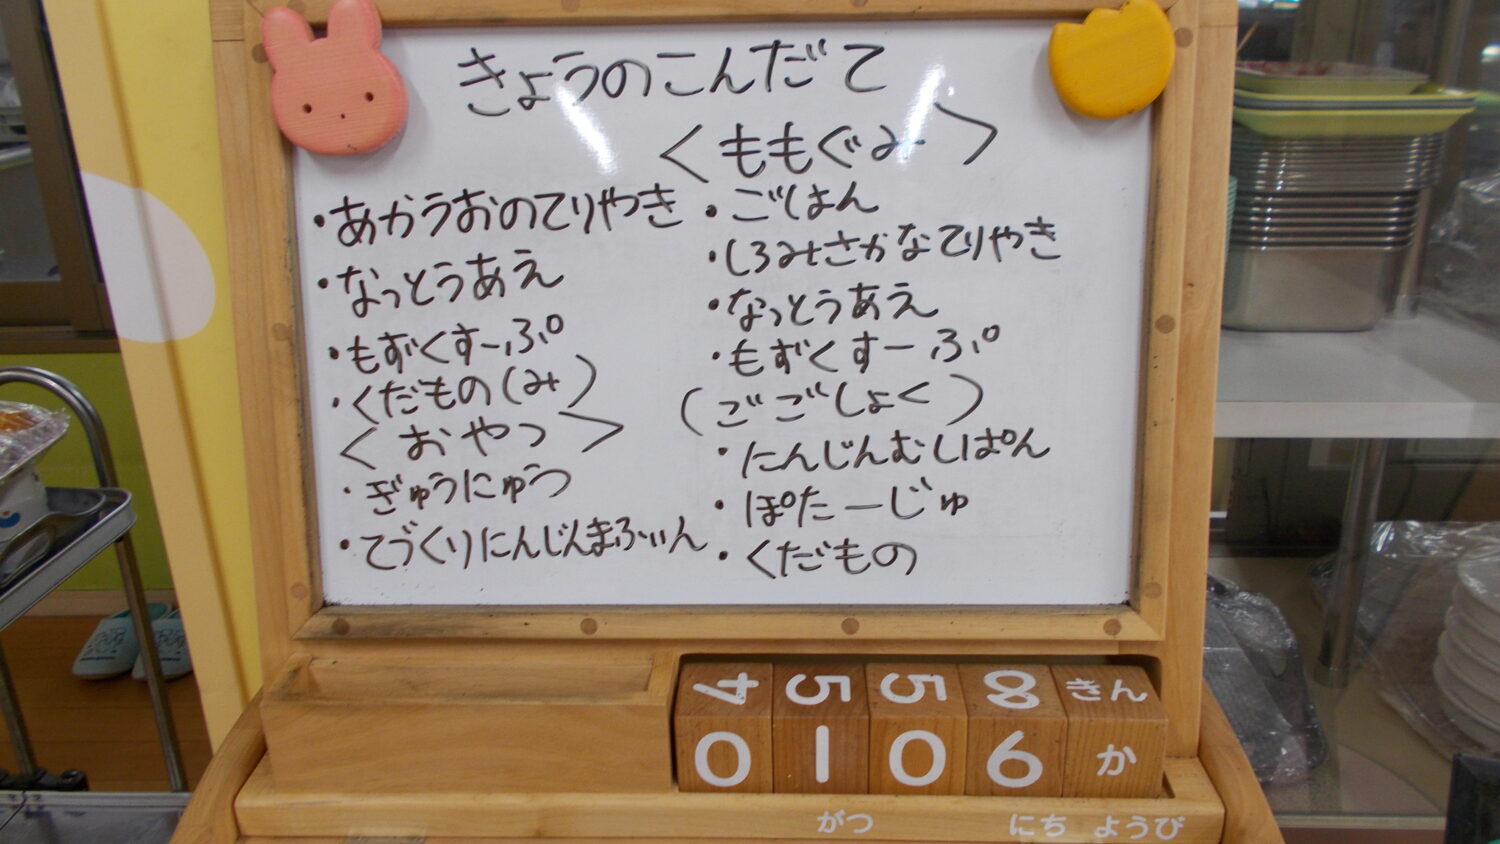 きょうのこんだて
<ももぐみ>
・あかうおのてりやき
・なっとうあえ
・もずくすーぷ
・くだもの(み)
<おやつ>
・ぎゅうにゅう
・てづくりにんじんまふぃん
・ごはん
・しろみさかなてりやき
・なっとうあえ
・もずくすーぷ
(ごごしょく)
・にんじんむしぱん
・ぽたーじゅ
・くだもの
4 5 5 8 きん
0 1 0 6 か
がつ にち ようび